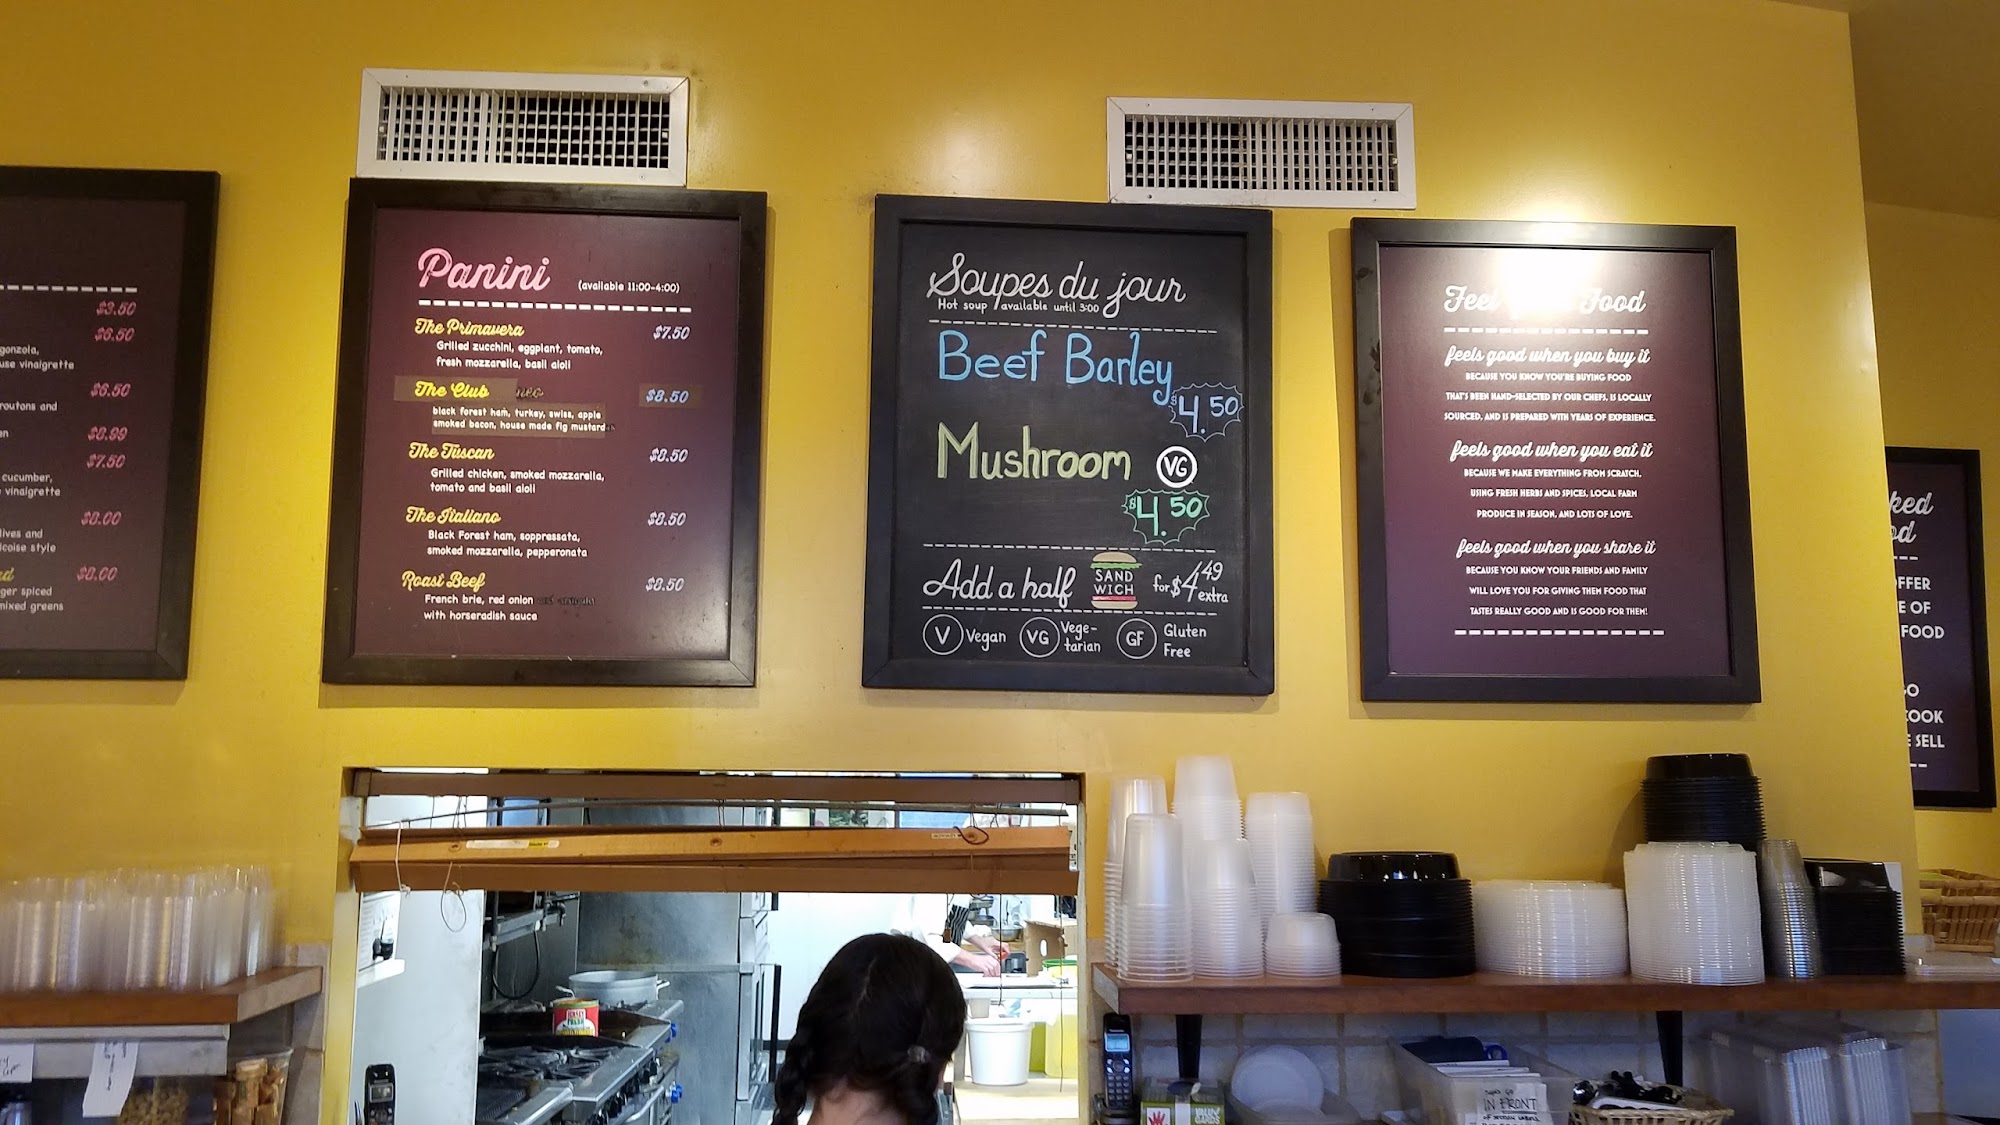 $3.50
$6.50
gonzola,
use vinaigrette
$6.50
routons and
en
$8.99
$7.50
cucumber,
vinaigrette
$8.00
lives and
icoise style
$8.00
ger spiced
mixed greens
Panini
(available 11:00-4:00)
The Primavera $7.50
Grilled zucchini, eggplant, tomato,
fresh mozzarella, basil aioli
The Club $8.50
black forest ham, turkey, swiss, apple
smoked bacon, house made fig mustard
The Tuscan $8.50
Grilled chicken, smoked mozzarella,
tomato and basil aioli
The Italiano $8.50
Black Forest ham, soppressata,
smoked mozzarella, pepperonata
Roast Beef $8.50
French brie, red onion
with horseradish sauce
Soupes du jour
Hot soup available until 3:00
Beef Barley
$4.50
Mushroom VG
$4.50
Add a half SAND WICH for $4.49 extra
V Vegan VG Vege-tarian GF Gluten Free
Feel Food
feels good when you buy it
BECAUSE YOU KNOW YOU'RE BUYING FOOD
THAT'S BEEN HAND-SELECTED BY OUR CHEFS, IS LOCALLY
SOURCED, AND IS PREPARED WITH YEARS OF EXPERIENCE.
feels good when you eat it
BECAUSE WE MAKE EVERYTHING FROM SCRATCH,
USING FRESH HERBS AND SPICES, LOCAL FARM
PRODUCE IN SEASON, AND LOTS OF LOVE.
feels good when you share it
BECAUSE YOU KNOW YOUR FRIENDS AND FAMILY
WILL LOVE YOU FOR GIVING THEM FOOD THAT
TASTES REALLY GOOD AND IS GOOD FOR THEM!
ked
od
OFFER
E OF
FOOD
GO
COOK
E SELL
IN FRONT